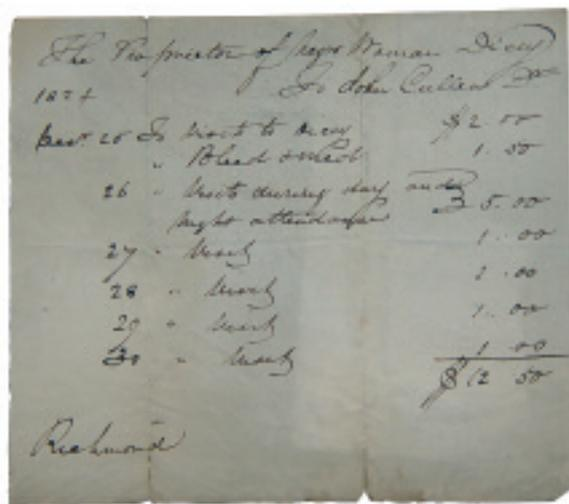 The Proprietor of Negro Woman Dicey
1824 To John Cullen Dr
25 To Visit to Dicey $2.00
" Bleed & Med 1.50
26 " Visits during day and
night attendance 5.00
27 " Visit 1.00
28 " Visit 1.00
29 " Visit 1.00
30 " Visit 1.00
$12.50
Richmond